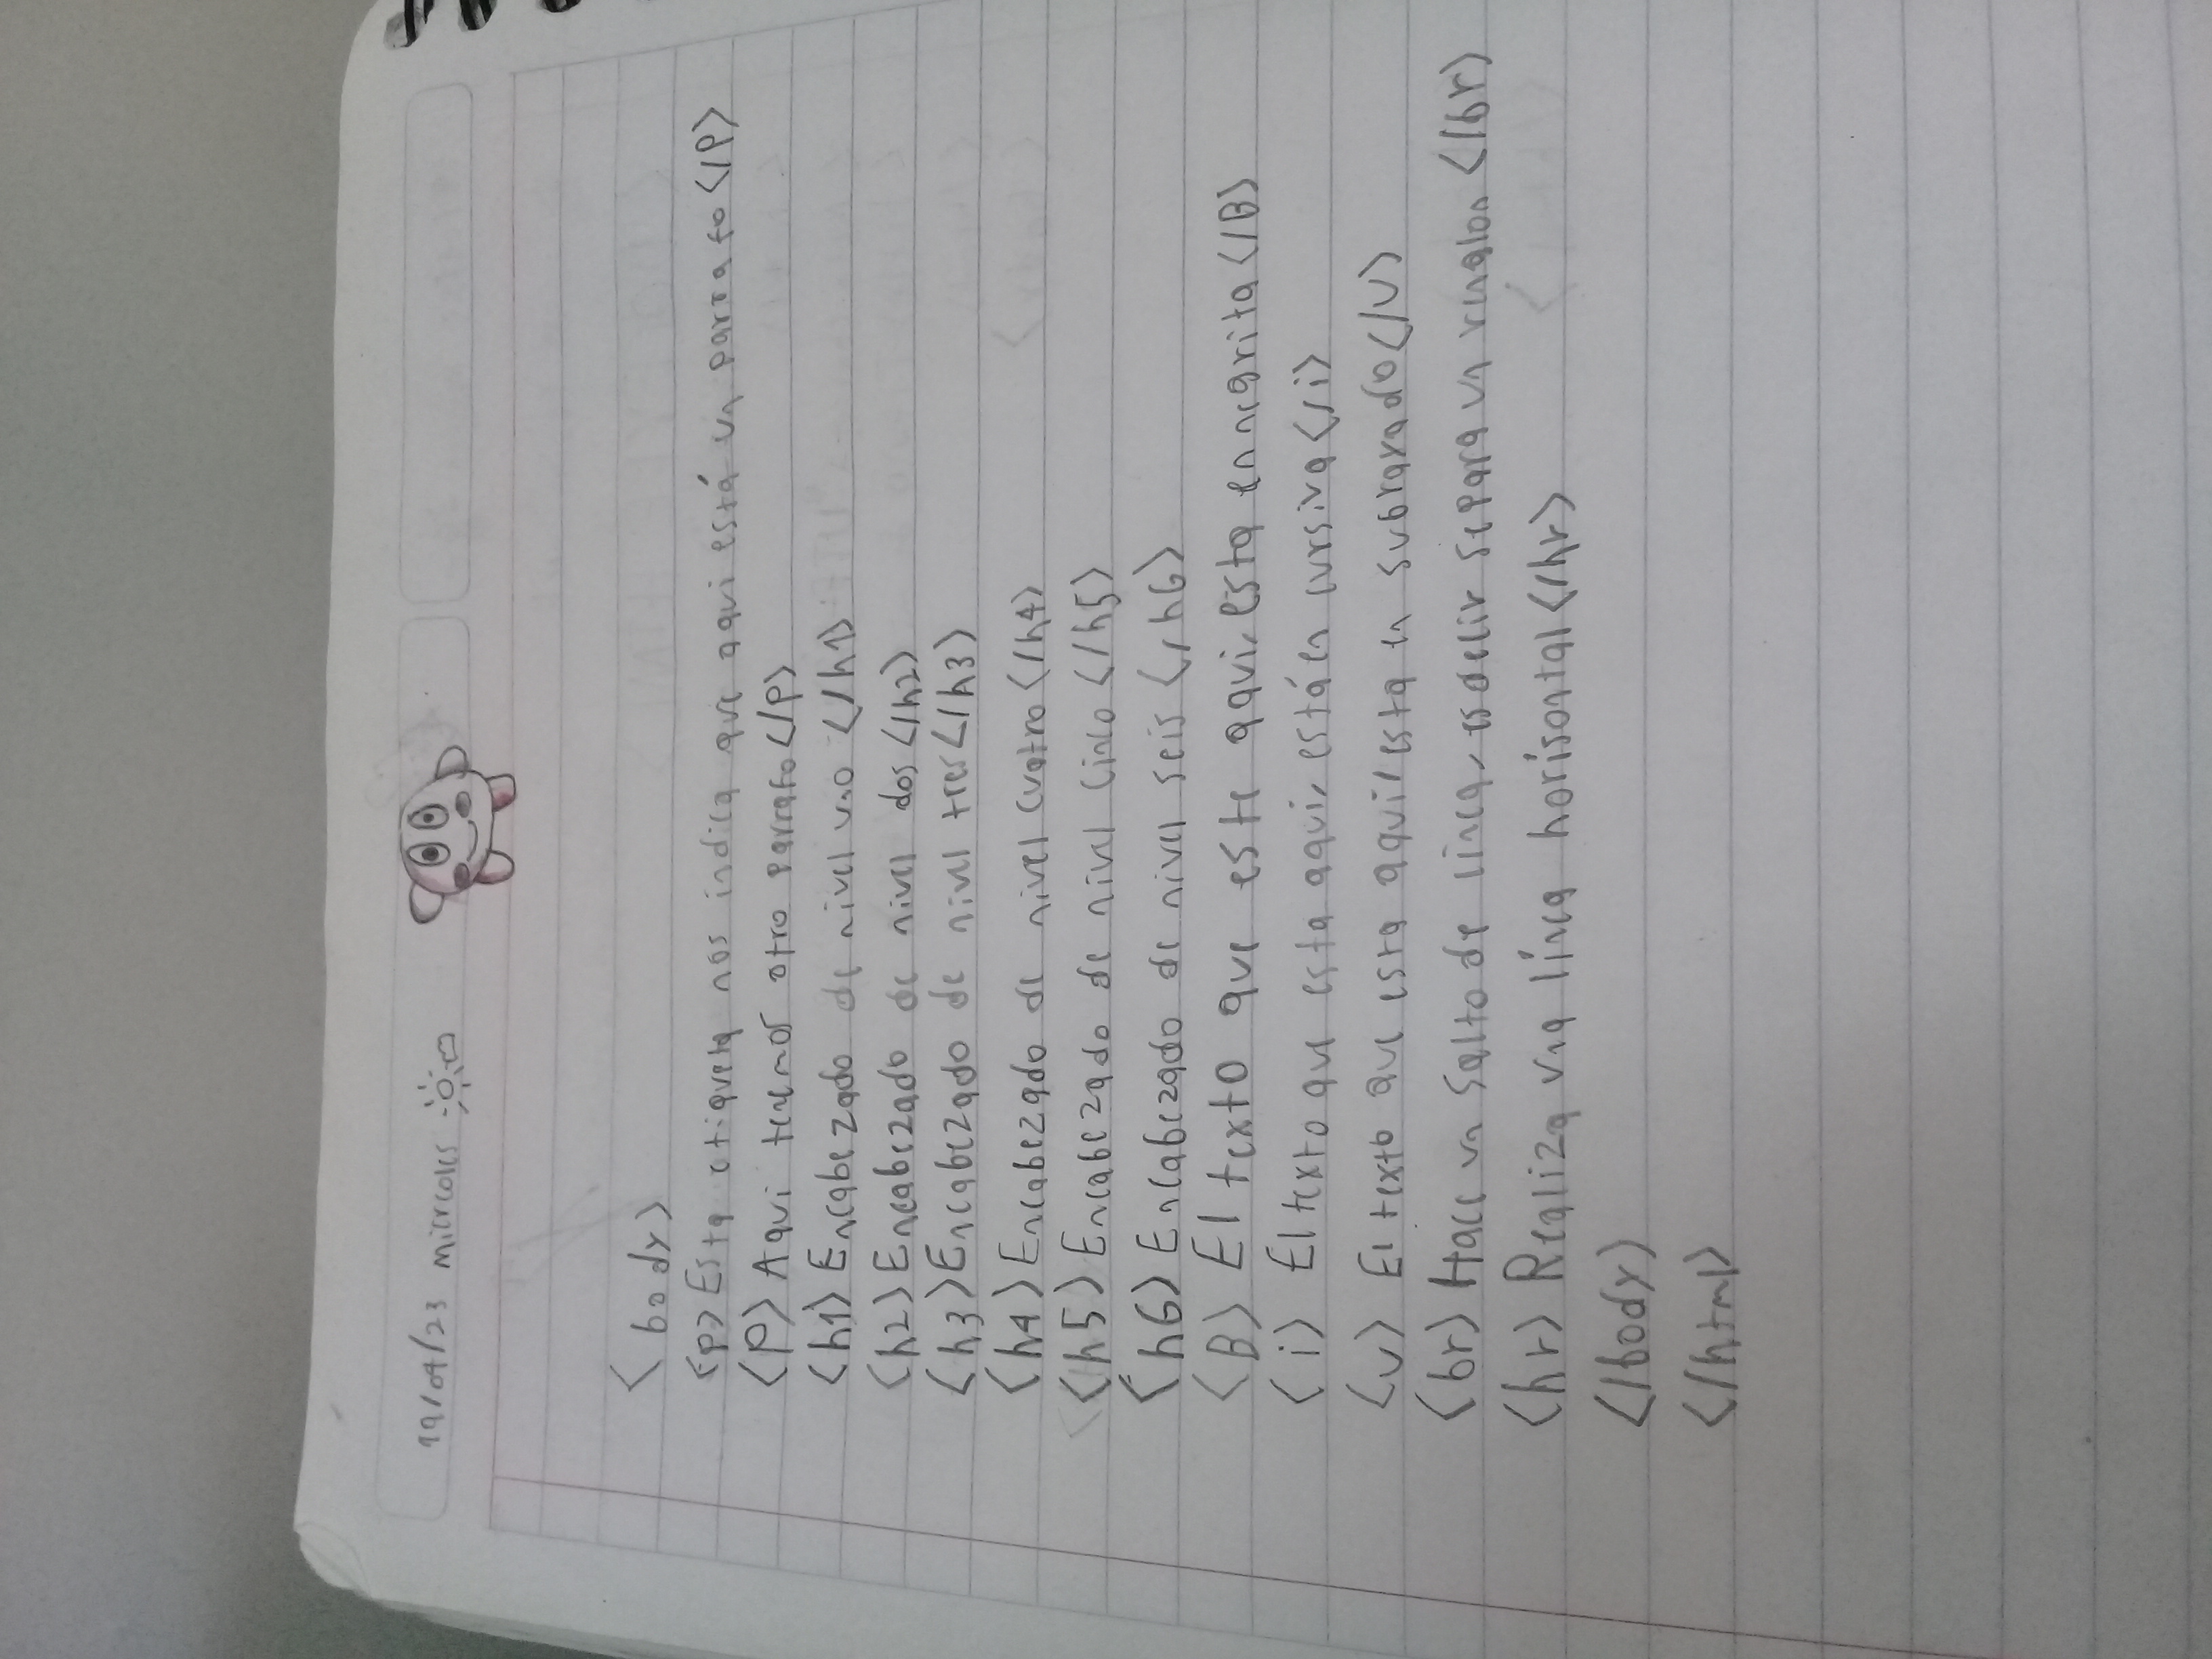 19/04/23 miercoles
<body>
<p> Esta etiqueta nos indica que aqui está un parrafo </p>
<p> Aqui tenemos otro parrafo </p>
<h1> Encabezado de nivel uno </h1>
<h2> Encabezado de nivel dos </h2>
<h3> Encabezado de nivel tres </h3>
<h4> Encabezado de nivel cuatro </h4>
<h5> Encabezado de nivel cinco </h5>
<h6> Encabezado de nivel seis </h6>
<B> El texto que este aqui, esta en negrita </B>
<i> El texto que esta aqui, está en cursiva </i>
<u> El texto que esta aqui, esta en subrayado </u>
<br> Hace un salto de linea, es decir separa un renglon </br>
<hr> Realiza una línea horisontal </hr>
</body>
</html>